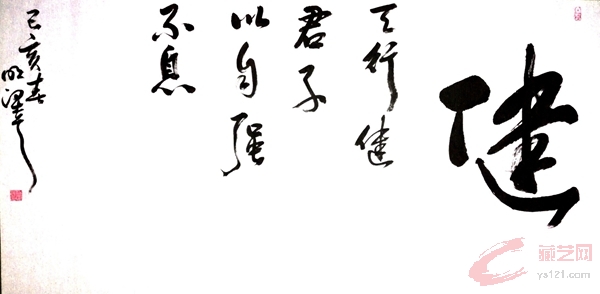 健
天行健
君子
以自强
不息
己亥春
藏艺网
ys121.com